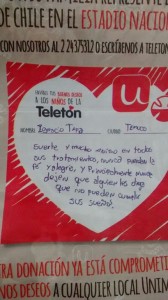 DE CHILE EN EL ESTADIO NACIONAL
CON NOSOTROS AL 2 24375312 O ESCRÍBENOS A TELETON
A LOS NIÑOS DE LA
Teletón
NOMBRE Ignacio Tara CIUDAD Temuco
Suerte y mucho animo en todos
sus tratamientos, nunca pierdan la
fe y alegria, y Principalmente nunca
dejen que alguien les diga
que no pueden cumplir
sus sueños.
TRA DONACIÓN YA ESTÁ COMPROMETI
NOS DESEOS A CUALQUIER LOCAL UNI